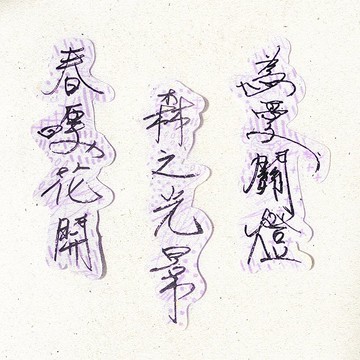 為愛關燈
森之光景
春暖花開